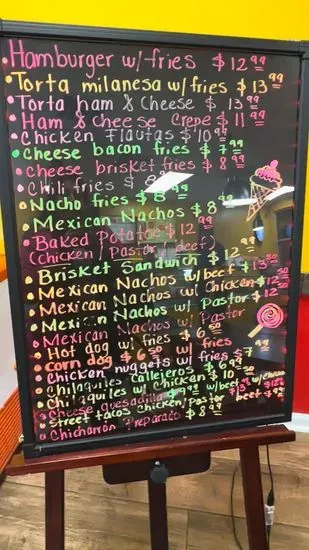 Hamburger w/ fries $12.99
Torta milanesa w/ fries $13.99
Torta ham & Cheese $13.99
Ham & Cheese Crepe $11.99
Chicken Flautas $10.99
Cheese bacon fries $7.99
cheese brisket fries $8.99
Chili fries $8
Nacho fries $8.99
Mexican Nachos $8.99
Baked Potatoe $12.99
(Chicken / Pastor / beef)
Brisket Sandwich $12.99
Mexican Nachos w/ beef $13.50
Mexican Nachos w/ Chicken $12.50
Mexican Nachos w/ Pastor $12.50
Mexican Nachos w/ Pastor
Hot dog w/ fries $6.50
corn dog $6.50 w/ fries
chicken nuggets w/ fries $7.99
chilaquiles callejeros $6.99
Chilaquiles w/ Chicken $10.50
Cheese quesadilla w/ beef w/ Chicken
street tacos chicken / Pastor beef
Chicharron Preparado $8.99